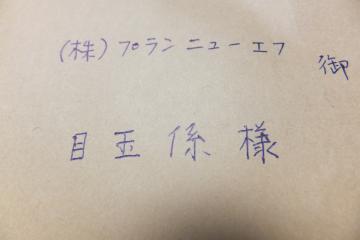 (株)プランニューエフ
御
目玉係様